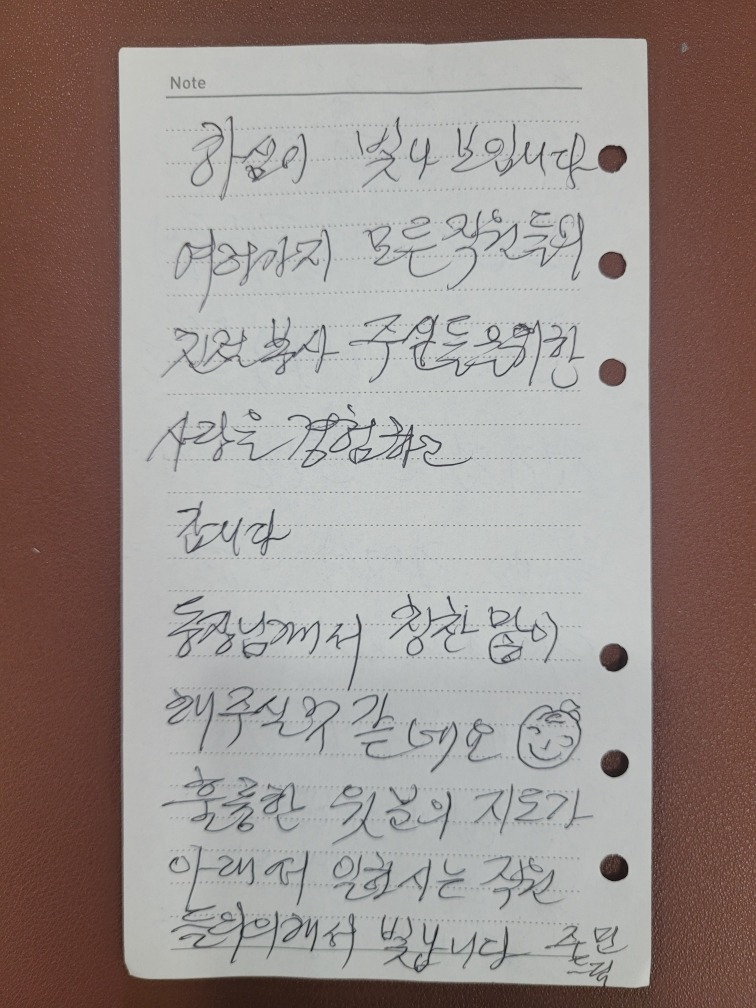 Note
하심이 빛나 보입니다
여하까지 모든 직원들의
진정 봉사 주민들을위한
사랑을 경험하고
갑니다
동장님께서 칭찬 많이
해주실것 같네요
훌륭한 윗분의 지도가
아래서 일하시는 직원
들의의해서 빛납니다 주민
드림